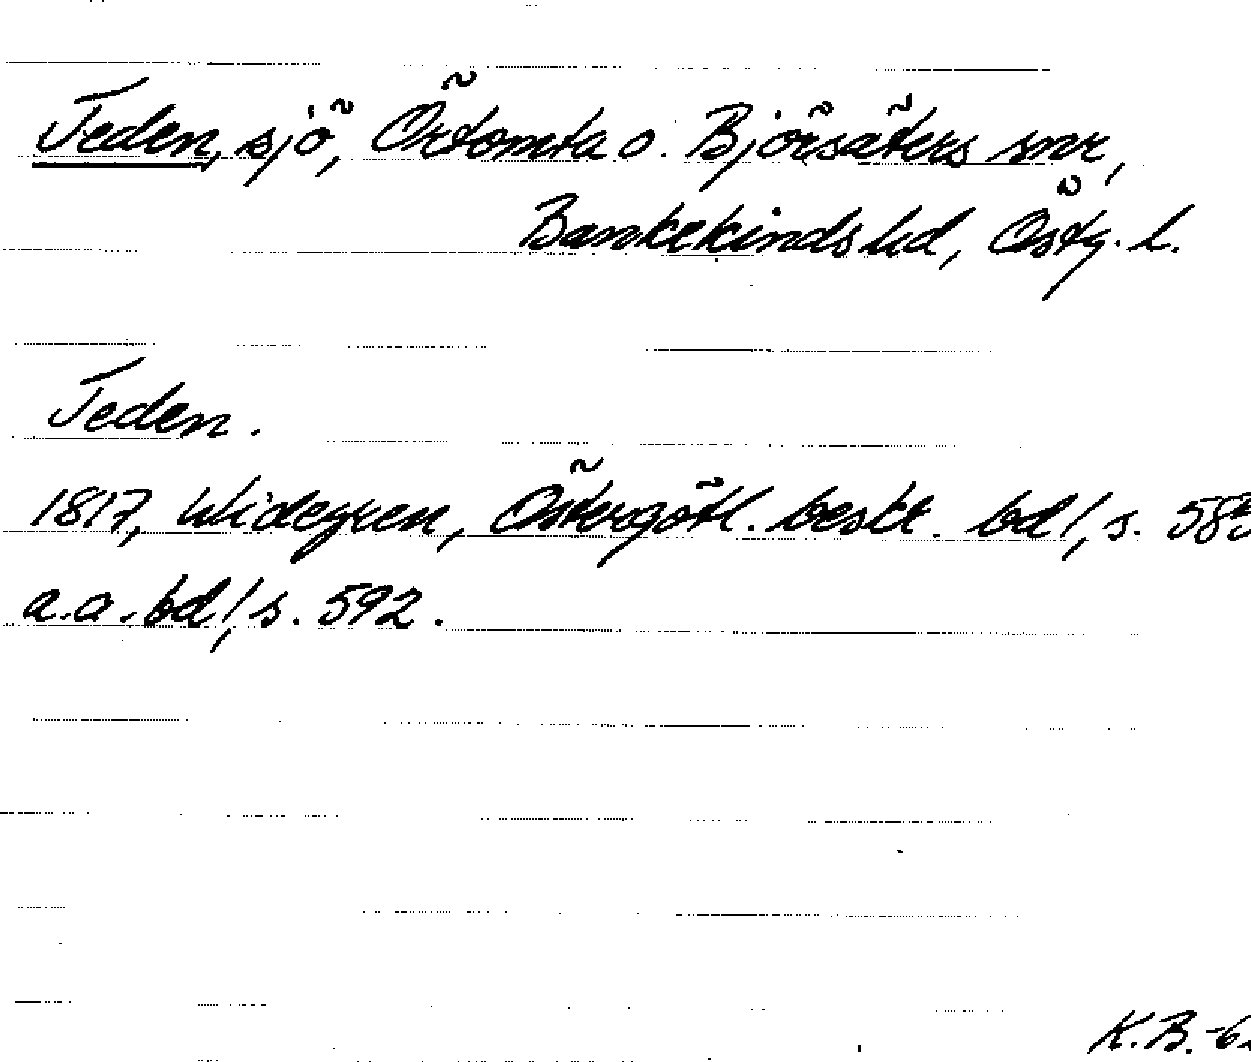 Teden, sjö, Örtomta o. Björsäters snr,
Bankekinds hd, Östg. l.
Teden.
1817, Widegren, Östergötl. beskr. bd 1, s.
a.a. bd 1, s. 592.
K.B.